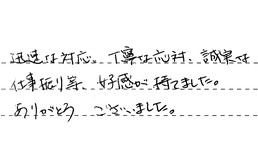 迅速な対応、丁寧な応対、誠実な
仕事振り等、好感が持てました。
ありがとうございました。